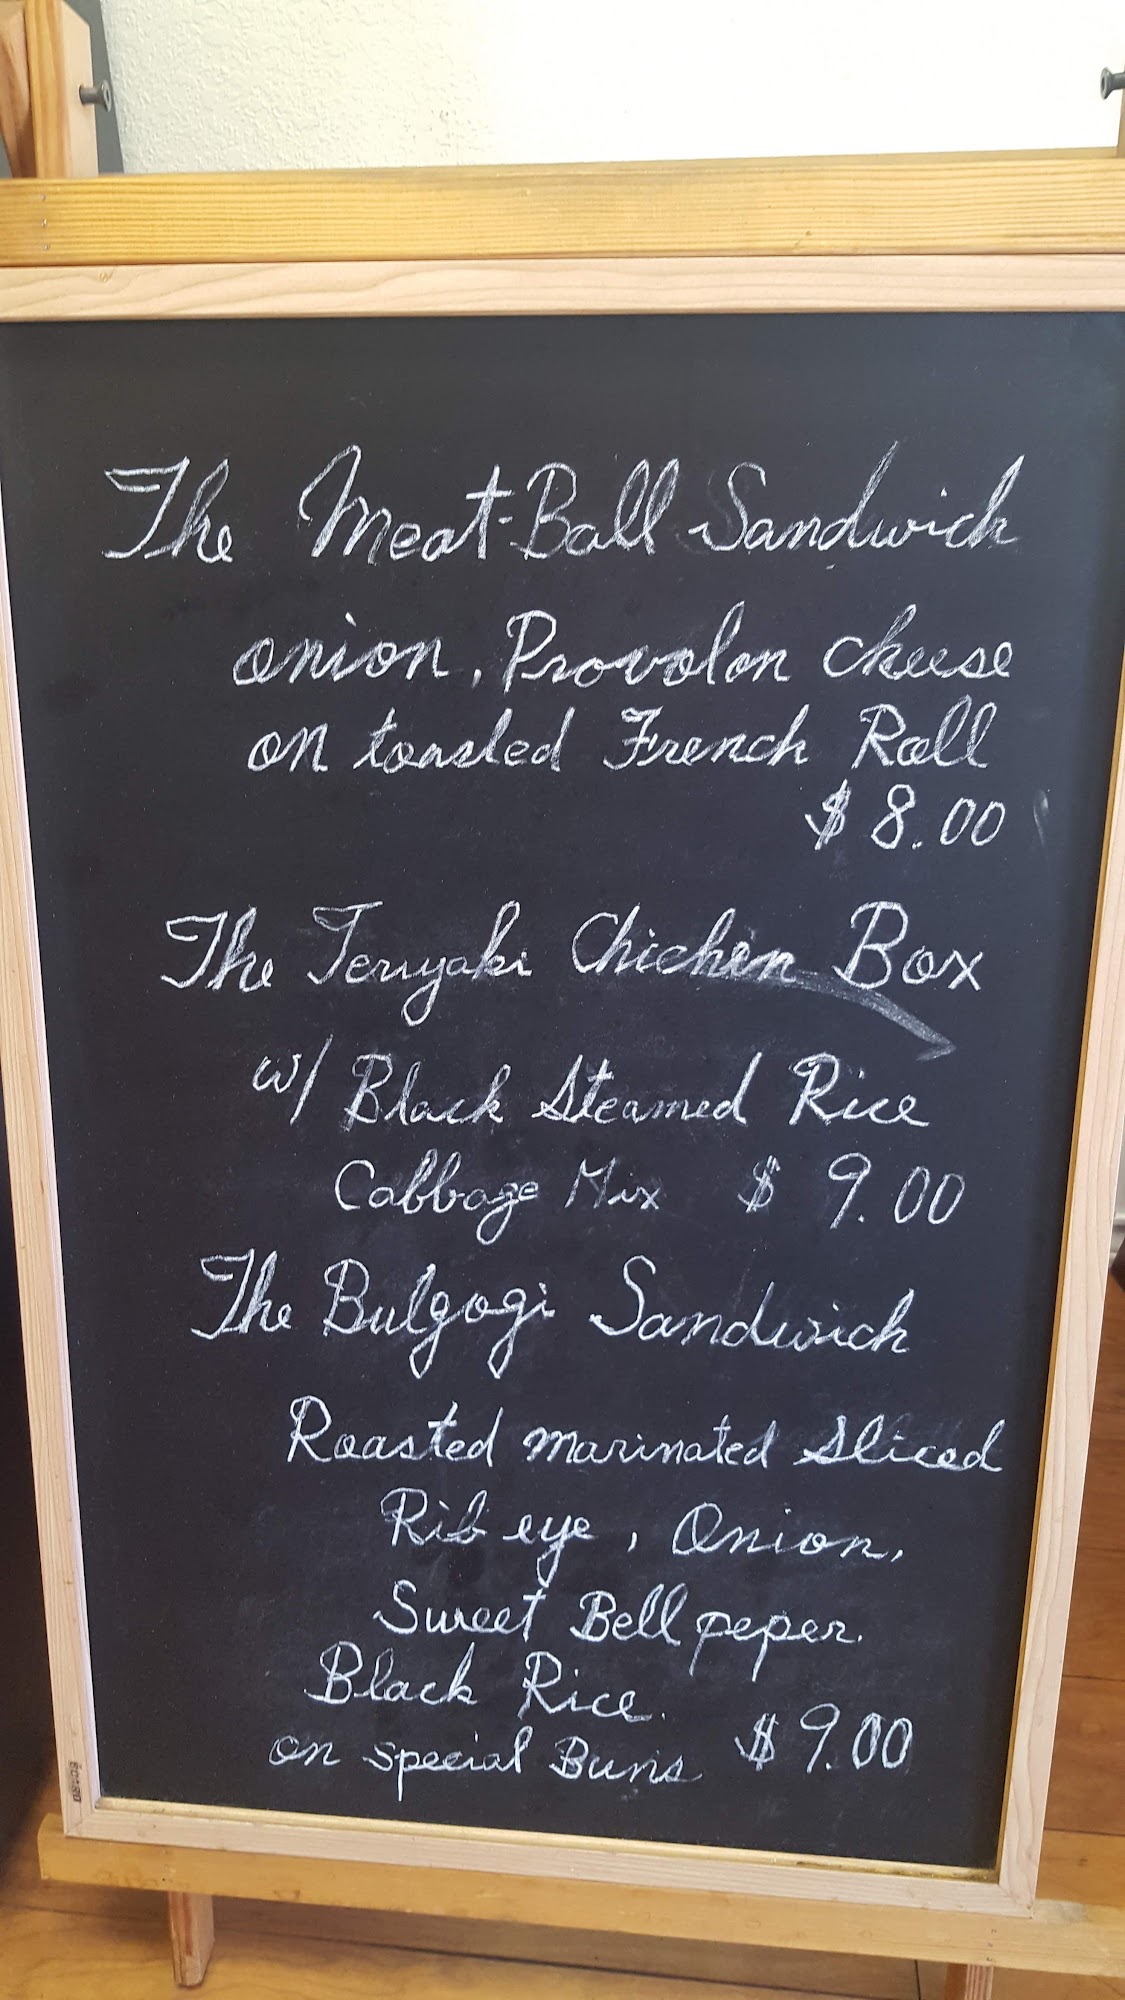 The Meat-Ball Sandwich
onion, Provolon cheese
on toasted French Roll
$ 8.00
The Teriyaki Chicken Box
w/ Black Steamed Rice
Cabbage Mix $ 9.00
The Bulgogi Sandwich
Roasted marinated Sliced
Rib eye, Onion,
Sweet Bell peper.
Black Rice.
on special Buns $ 9.00